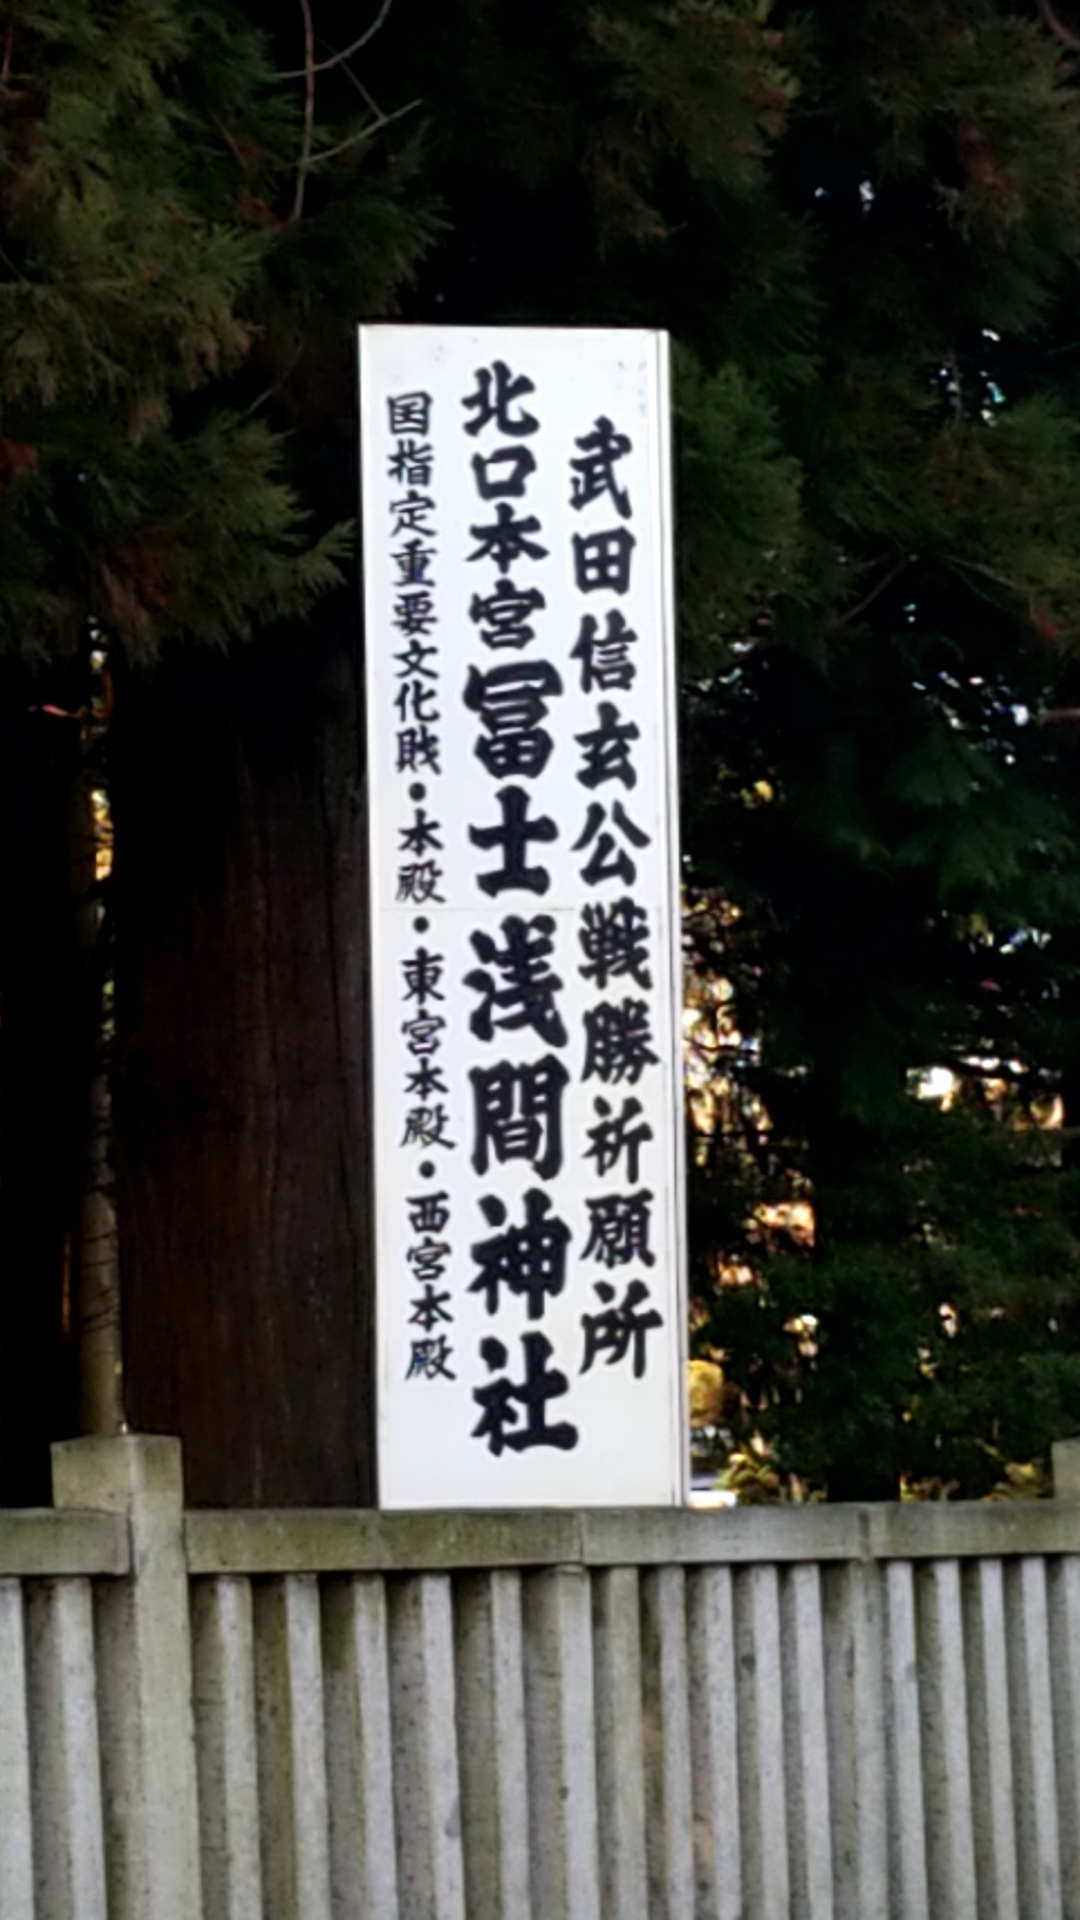 武田信玄公戦勝祈願所
北口本宮冨士浅間神社
国指定重要文化財・本殿・東宮本殿・西宮本殿